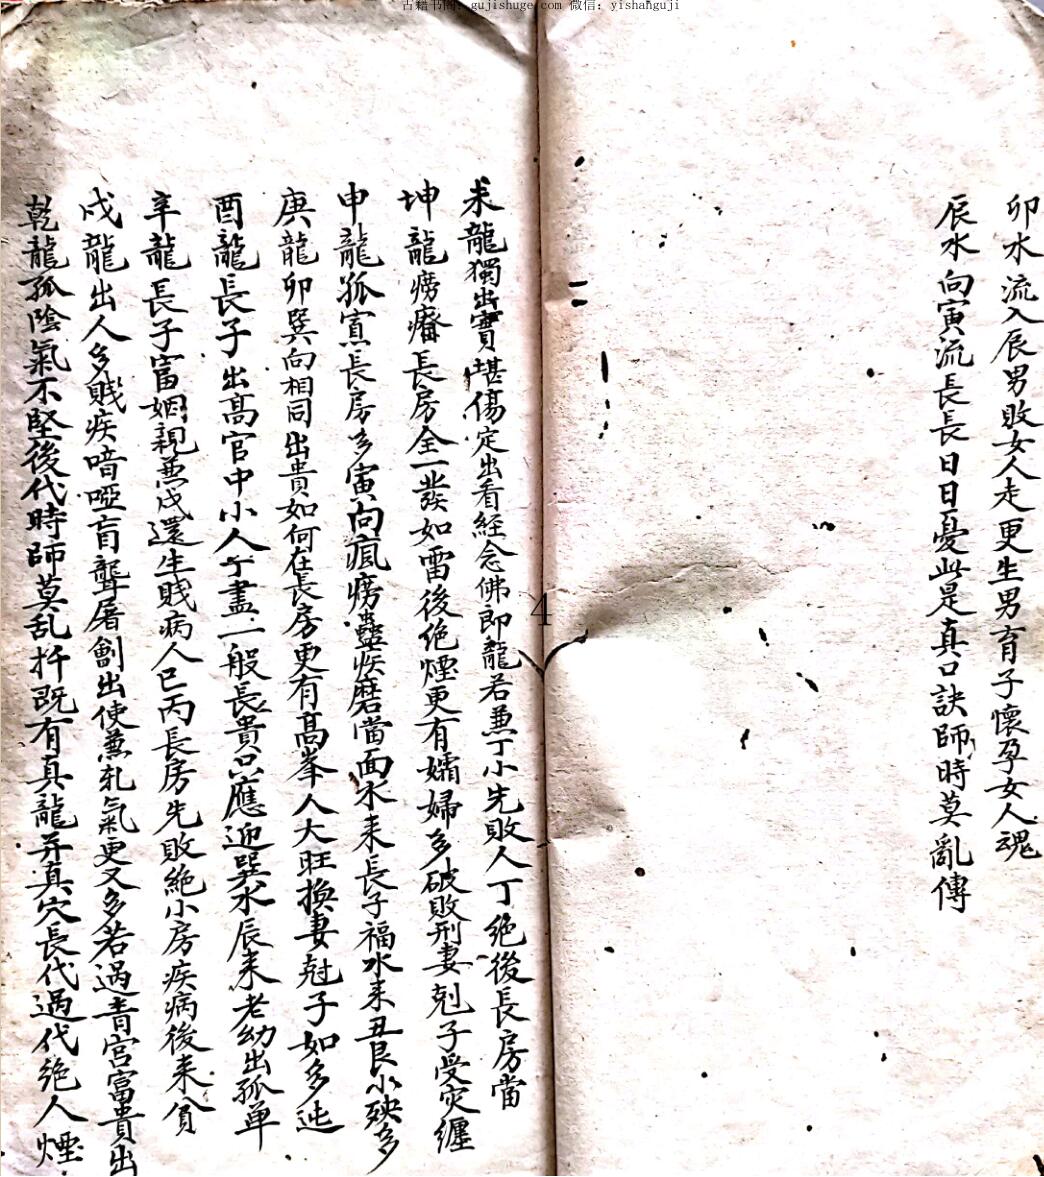 古籍书阁：gujishuge.com 微信：yishanguji
卯水流入辰男敗女人走更生男育子懷孕女人魂
辰水向寅流長長日日憂此是真口訣師時莫亂傳
4
未龍獨出實堪傷定出看經念佛郎龍若兼丁小先敗人丁絕後長房當
坤龍癆瘠長房全一發如雷後绝煙更有孀婦多破敗刑妻尅子受灾纏
申龍孤寡長房多寅向瘋癆蠱疾磨當面水来長子福水来丑艮小殃多
庚龍卯巽向相同出貴如何在長房更有高峯人大旺換妻尅子如多迍
酉龍長子出高官中小人丁盡一般長貴只應迎巽水辰来老幼出孤单
辛龍長子富姻親兼戌還生賤病人巳丙長房先敗絕小房疾病後来貧
戌龍出人多賤疾喑啞盲聾屠劊出使兼乹氣更又多若過青宫富貴出
乾龍孤陰氣不堅後代時師莫乱扦既有真龍并真穴長代過代绝人煙